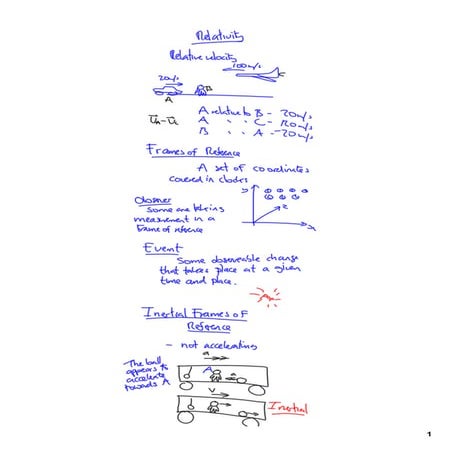 Relativity
Relative velocity
100m/s
20m/s
B
A
A relative to B - 20m/s
A " " C - 120m/s
B " " A - -20m/s
Frames of Reference
A set of coordinates
covered in clocks
y
z
x
Observer
Someone taking
measurement in a
frame of reference
Event
Some observable change
that takes place at a given
time and place.
Inertial Frames of
Reference
- not accelerating
a
The ball
appears to
accelerate
towards A
A
v
Inertial
1